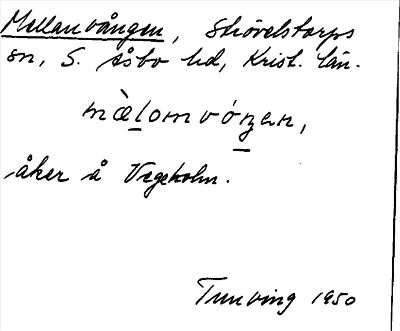 Mellanvången, Skövelstorps
sn, S. Åsbo hd, Krist. län.
mæ̀lomvóŋen,
åker å Vegeholm.
Tunving 1950